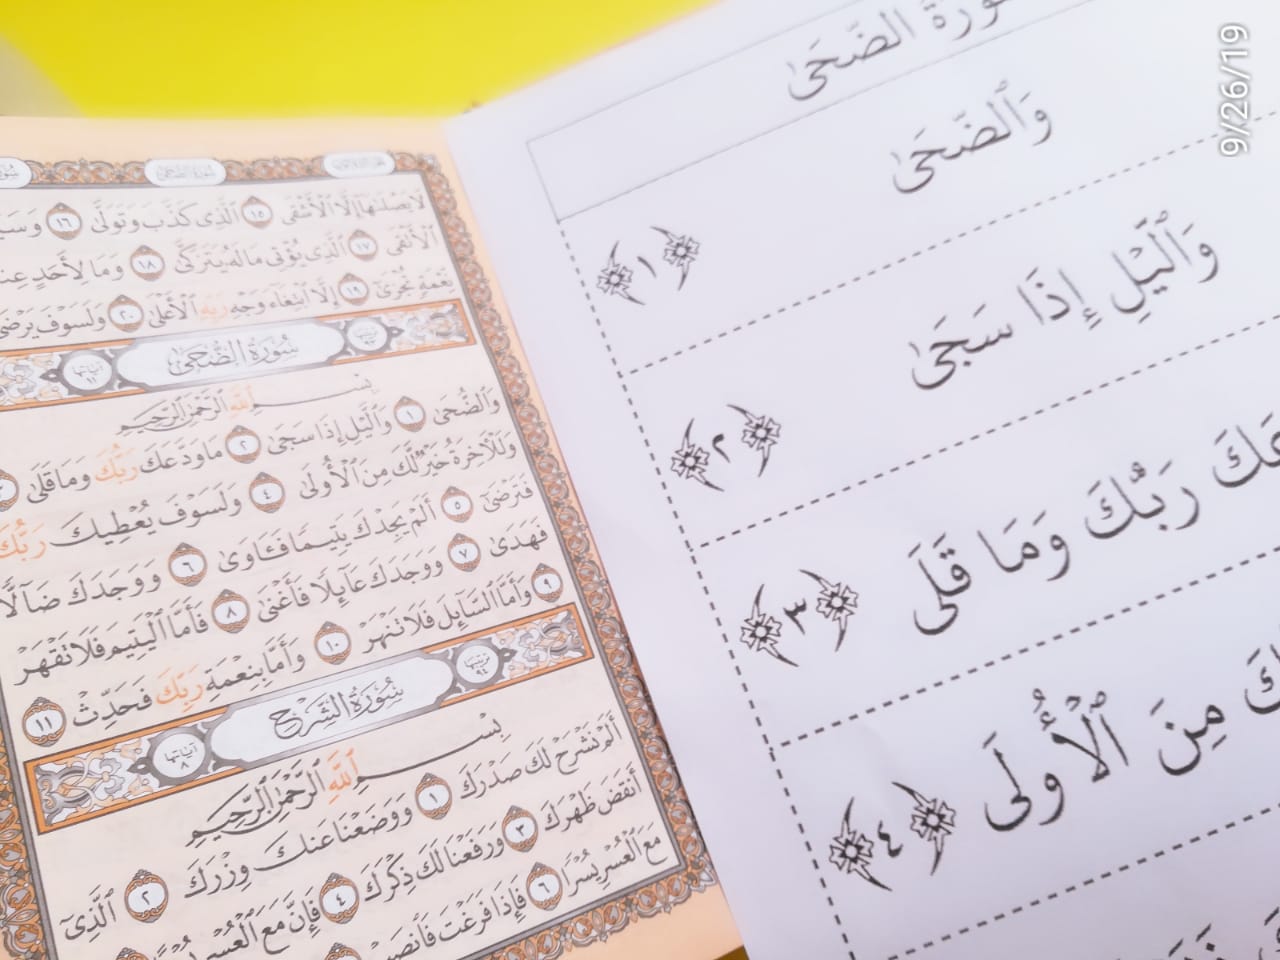 سُورَةُ الضُّحَى
لَا يَصْلَىٰهَآ إِلَّا ٱلْأَشْقَى ١٥ ٱلَّذِى كَذَّبَ وَتَوَلَّىٰ ١٦
ٱلْأَتْقَى ١٧ ٱلَّذِى يُؤْتِى مَالَهُۥ يَتَزَكَّىٰ ١٨ وَمَا لِأَحَدٍ
نِّعْمَةٍ تُجْزَىٰٓ ١٩ إِلَّا ٱبْتِغَآءَ وَجْهِ رَبِّهِ ٱلْأَعْلَىٰ ٢٠ وَلَسَوْفَ يَرْضَىٰ
ترتيبها ٩٣ سُورَةُ الضُّحَىٰ آياتها ١١
بِسْمِ ٱللَّهِ ٱلرَّحْمَٰنِ ٱلرَّحِيمِ
وَٱلضُّحَىٰ ١ وَٱلَّيْلِ إِذَا سَجَىٰ ٢ مَا وَدَّعَكَ رَبُّكَ وَمَا قَلَىٰ ٣
وَلَلْآخِرَةُ خَيْرٌ لَّكَ مِنَ ٱلْأُولَىٰ ٤ وَلَسَوْفَ يُعْطِيكَ رَبُّكَ
فَتَرْضَىٰٓ ٥ أَلَمْ يَجِدْكَ يَتِيمًا فَـَٔاوَىٰ ٦ وَوَجَدَكَ ضَآلًّا
فَهَدَىٰ ٧ وَوَجَدَكَ عَآئِلًا فَأَغْنَىٰ ٨ فَأَمَّا ٱلْيَتِيمَ فَلَا تَقْهَرْ
٩ وَأَمَّا ٱلسَّآئِلَ فَلَا تَنْهَرْ ١٠ وَأَمَّا بِنِعْمَةِ رَبِّكَ فَحَدِّثْ ١١
ترتيبها ٩٤ سُورَةُ الشَّرْحِ آياتها ٨
بِسْمِ ٱللَّهِ ٱلرَّحْمَٰنِ ٱلرَّحِيمِ
أَلَمْ نَشْرَحْ لَكَ صَدْرَكَ ١ وَوَضَعْنَا عَنكَ وِزْرَكَ ٢ ٱلَّذِىٓ
أَنقَضَ ظَهْرَكَ ٣ وَرَفَعْنَا لَكَ ذِكْرَكَ ٤ فَإِنَّ مَعَ ٱلْعُسْرِ يُسْرًا
مَعَ ٱلْعُسْرِ يُسْرًا ٦ فَإِذَا فَرَغْتَ فَٱنصَبْ
سُورَةُ الضُّحَىٰ
وَٱلضُّحَىٰ
﴿١﴾
وَٱلَّيْلِ إِذَا سَجَىٰ
﴿٢﴾
رَبُّكَ وَمَا قَلَىٰ
﴿٣﴾
مِنَ ٱلْأُولَىٰ
﴿٤﴾
9/26/19